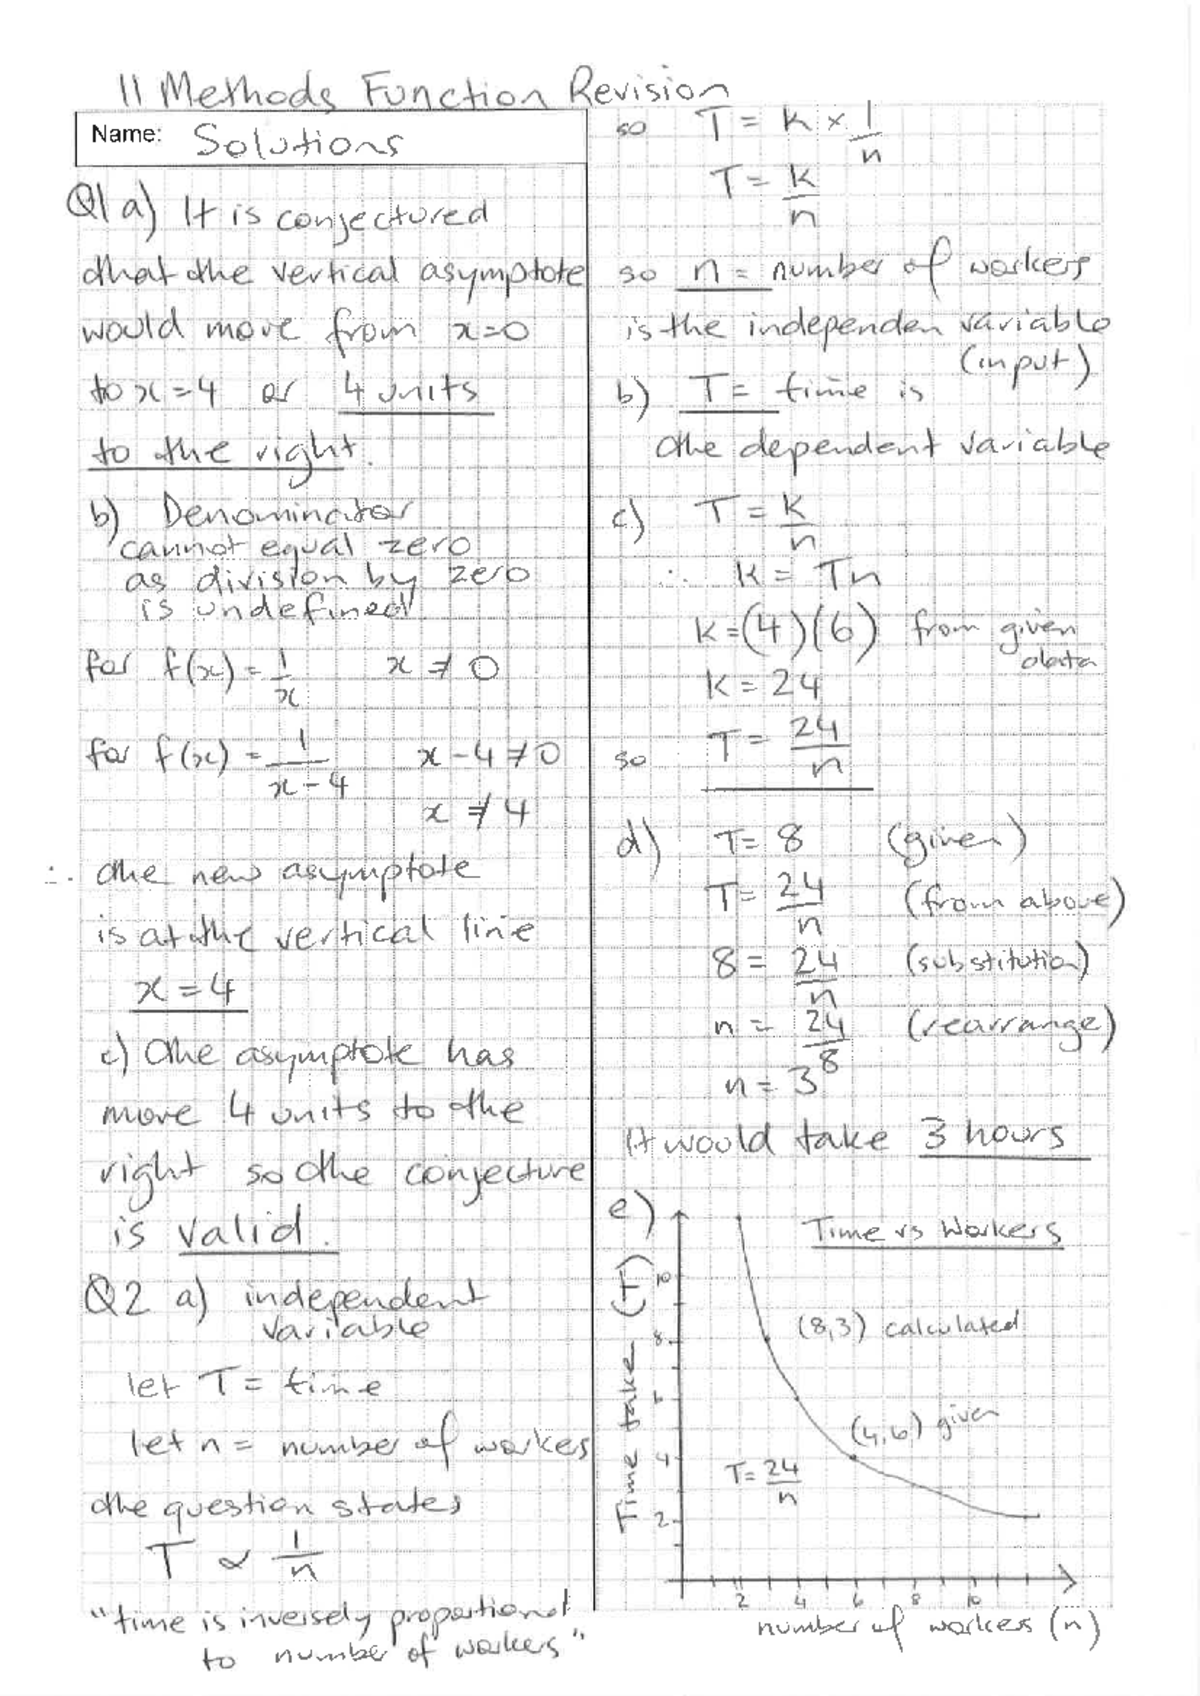 11 Methods Function Revision
Name: Solutions
Q1 a) It is conjectured
that the vertical asymptote
would move from x=0
to x=4 or 4 units
to the right.
b) Denominator
cannot equal zero
as division by zero
is undefined
for f(x) = 1/x x ≠ 0
for f(x) = 1/(x-4) x-4 ≠ 0
x ≠ 4
∴ the new asymptote
is at the vertical line
x = 4
c) The asymptote has
move 4 units to the
right so the conjecture
is valid.
Q2 a) independent
variable
let T = time
let n = number of workes
the question states
T ∝ 1/n
"time is inversely proportional
to number of workers"
so T = k × 1/n
T = k/n
so n = number of workers
is the independen variable
(input)
b) T = time is
the dependent variable
c) T = k/n
∴ k = Tn
k = (4)(6) from given
data
k = 24
so T = 24/n
d) T = 8 (given)
T = 24/n (from above)
8 = 24/n (substitution)
n = 24/8 (rearrange)
n = 3
It would take 3 hours
e)
Time vs Workers
Time take (T)
10
8
6
4
2
(8,3) calculated
(4,6) given
T = 24/n
2 4 6 8 10
number of workers (n)